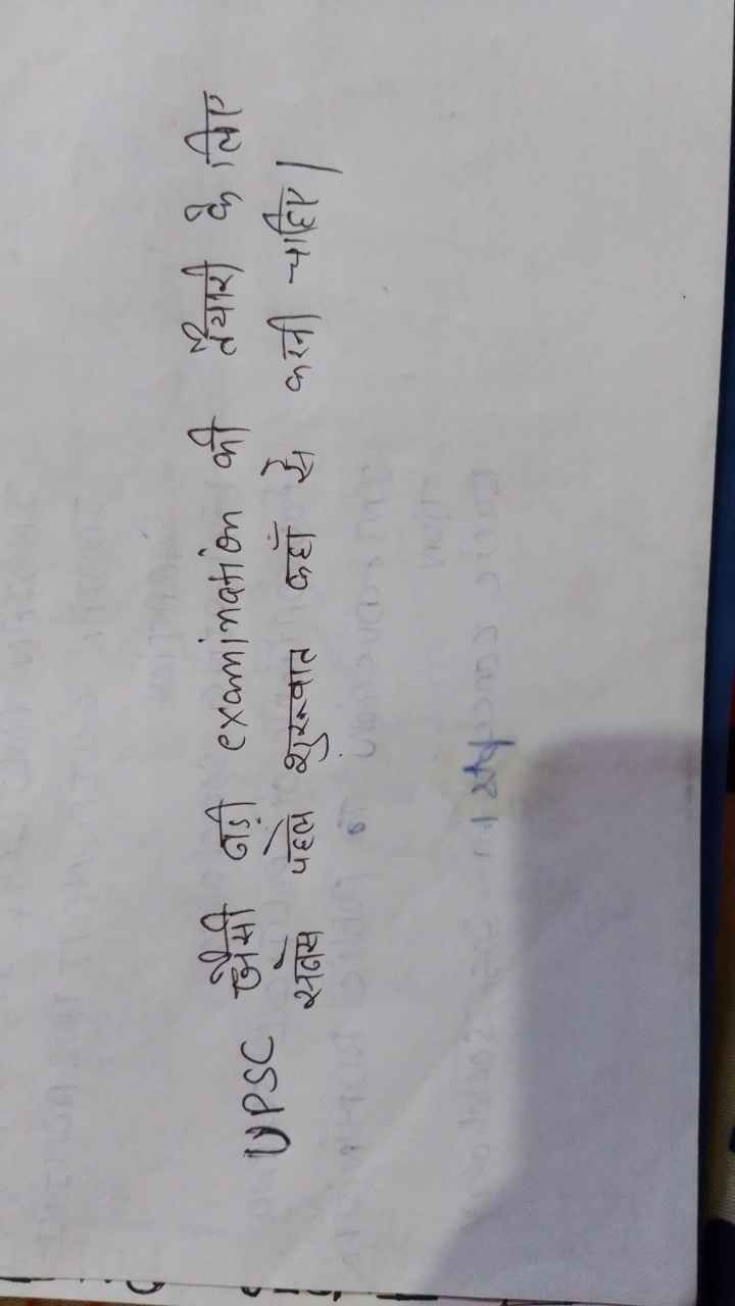 UPSC जैसी बड़ी examination की तैयारी के लिए
सबसे पहले शुरुवात कहाँ से करनी चाहिए।